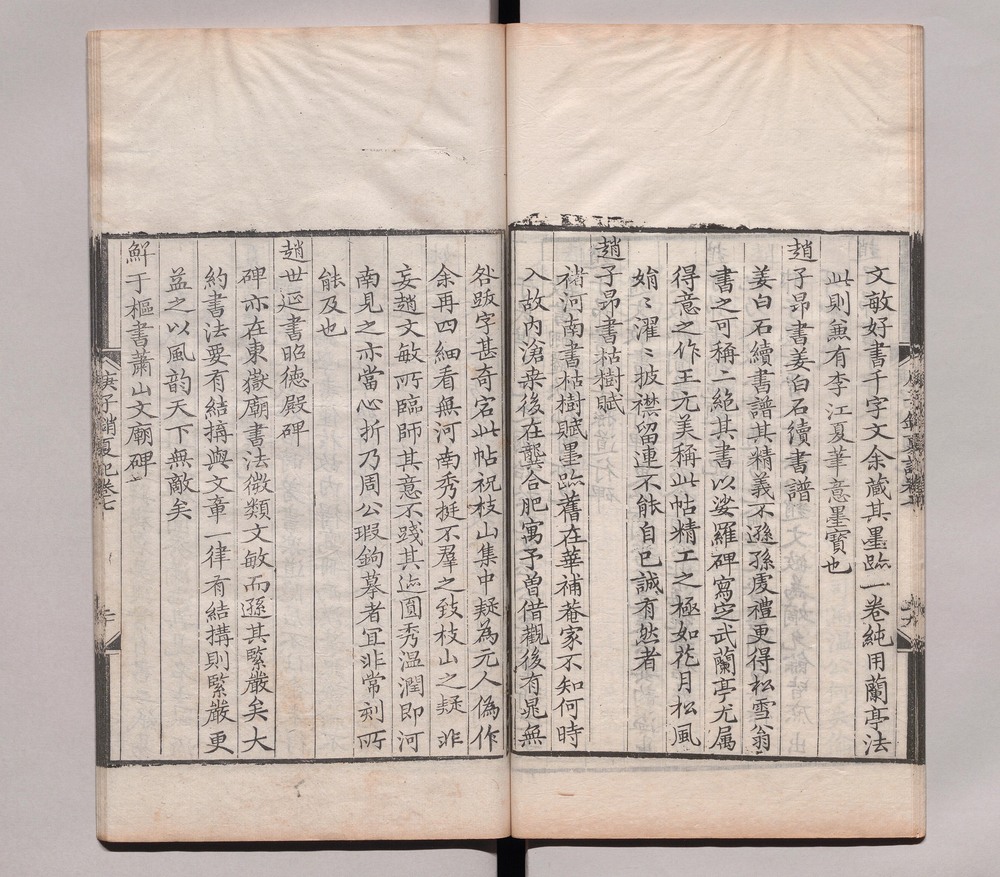 文敏好書千字文余蔵其墨跡一卷純用蘭亭法
此則兼有李江夏筆意墨寳也
趙子昂書姜白石續書譜
姜白石續書譜其精義不遜孫虔禮更得松雪翁
書之可稱二絶其書以娑羅碑寫定武蘭亭尤属
得意之作王元美稱此帖精工之極如花月松風
娟〻濯〻披襟留連不能自已誠有然者
趙子昂書枯樹賦
禇河南書枯樹賦墨跡舊在華補菴家不知何時
入故内滄桒後在龔合肥寓予曽借觀後有晁無
咎跋字甚奇宕此帖祝枝山集中疑為元人偽作
余再四細看無河南秀挺不羣之致枝山之疑非
妄趙文敏所臨師其意不踐其迹圓秀温潤即河
南見之亦當心折乃周公瑕鉤摹者宜非常刻所
能及也
趙世延書昭德殿碑
碑亦在東嶽廟書法微類文敏而遜其緊嚴矣大
約書法要有結搆與文章一律有結搆則緊嚴更
益之以風韵天下無敵矣
鮮于樞書蕭山文廟碑
庚子銷夏記卷七